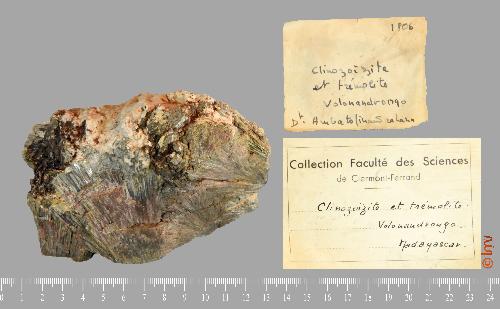 1906
Clinozoïzite
et trémolite
Volonandrongo
Dt. Ambatofinandrahana
Collection Faculté des Sciences
de Clermont-Ferrand
Clinozoïzite et trémolite.
Volonandrongo.
Madagascar.
© lmv
0 1 2 3 4 5 6 7 8 9 10 11 12 13 14 15 16 17 18 19 20 21 22 23 24